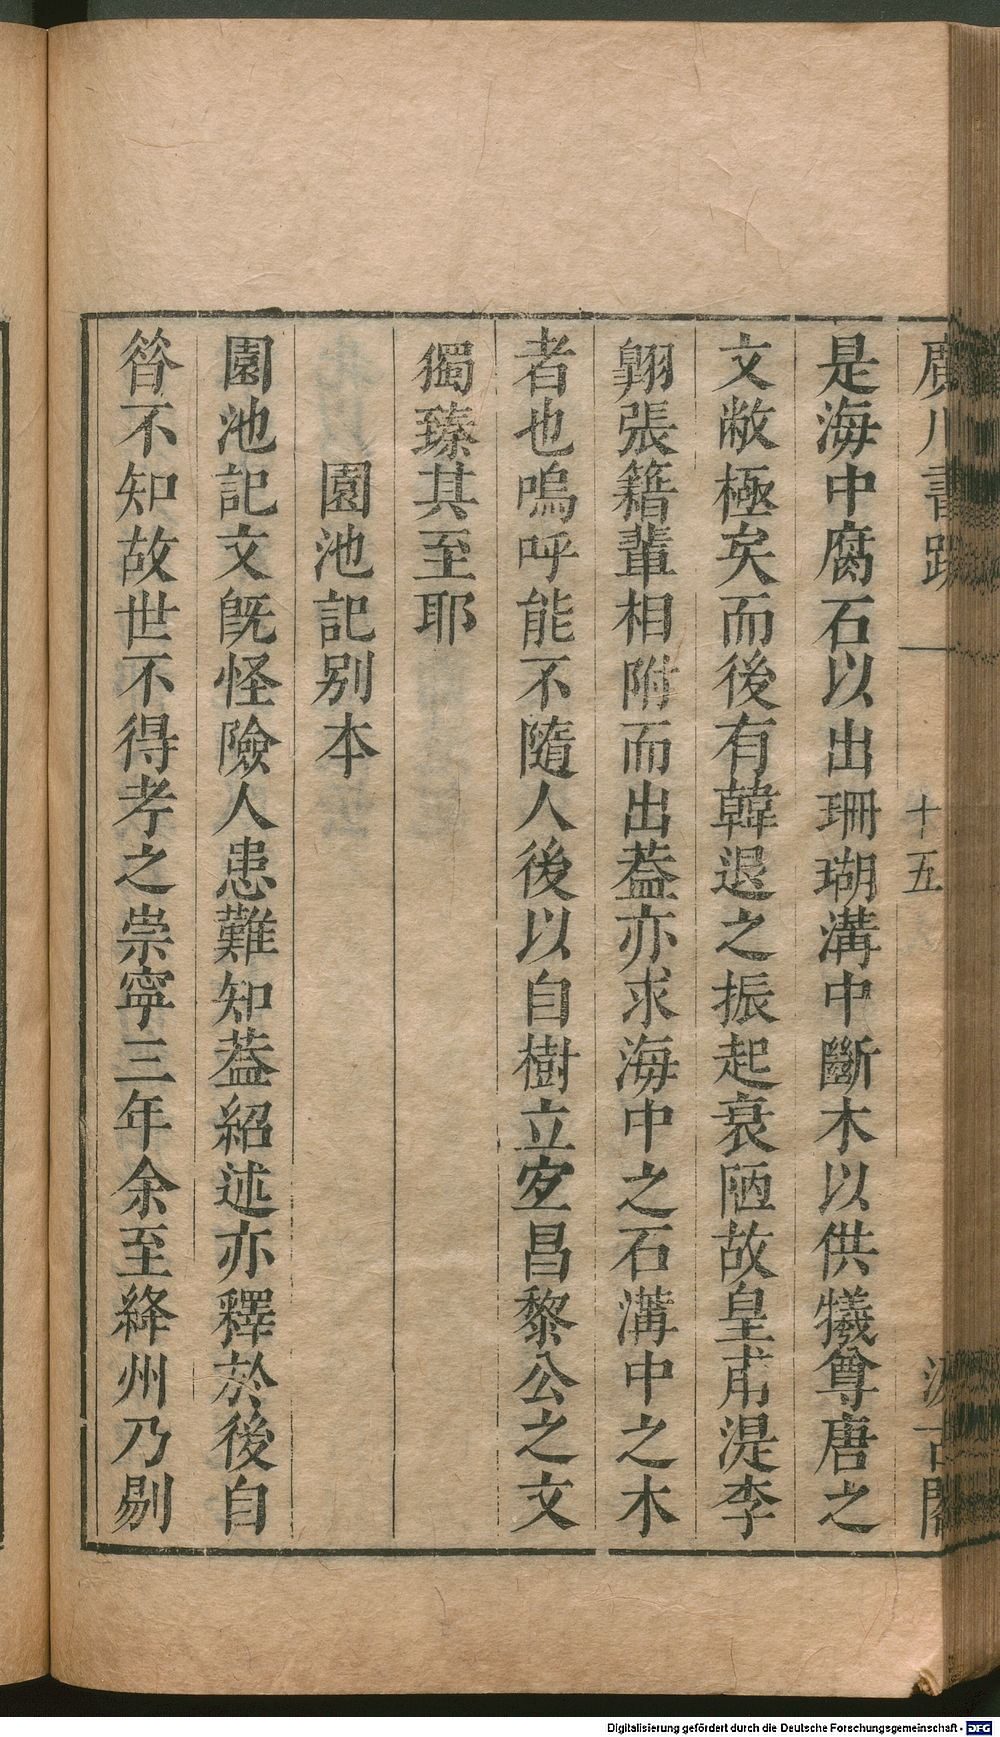 廣川書跋
十五
汲古閣
是海中腐石以出珊瑚溝中斷木以供犧尊唐之
文敝極矣而後有韓退之振起衰陋故皇甫湜李
翱張籍輩相附而出葢亦求海中之石溝中之木
者也嗚呼能不隨人後以自樹立宐昌黎公之文
獨臻其至耶
園池記别本
園池記文旣怪險人患難知葢紹述亦釋於後自
昝不知故世不得考之崇寧三年余至絳州乃剔
Digitalisierung gefördert durch die Deutsche Forschungsgemeinschaft - DFG